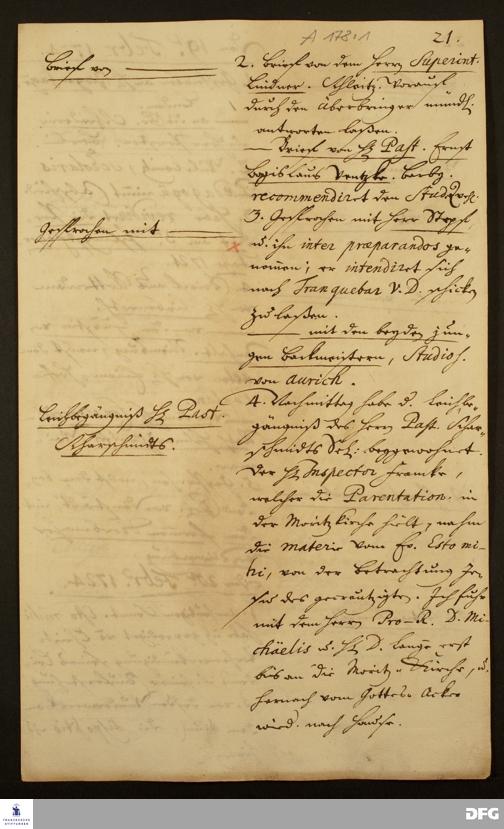 A 178:1
21.
Brieff von
2. Brieff von dem Herrn Superint.
Lindner. Schleitz. Worauf
durch den überbringer mündl.
antworten laßen.
— Brieff von H. Past. Ernst
Bogislaus Ventzke. Barby.
recommendiret den Stud.
Gesprochen mit
3. Gesprochen mit Herr Stepf,
u. ihn inter præparandos ge-
nommen; er intendiret sich
nach Tranquebar V. D. schicken
zu laßen.
— mit den beyden jun-
gen Backmeistern, Studios.
von Aurich.
Leichbegängniß H. Past.
Scharschmidts.
4. Nachmittag habe d. Leichbe-
gängniß des Herrn Past. Schar-
schmidts Sel: beygewohnet.
Der H. Inspector Francke,
welcher die Parentation in
der Moritzkirche hielt, nahm
die materie vom Ev. Esto mi-
hi, von der betrachtung Je-
su des gecreutzigten. Ich fuhr
mit dem Herrn Pro-R. D. Mi-
chäelis u. H. D. Lange erst
bis an die Moritz-Kirche, u.
hernach vom Gottes-Acker
wied. nach Hause.
FRANCKESCHE
STIFTUNGEN
DFG